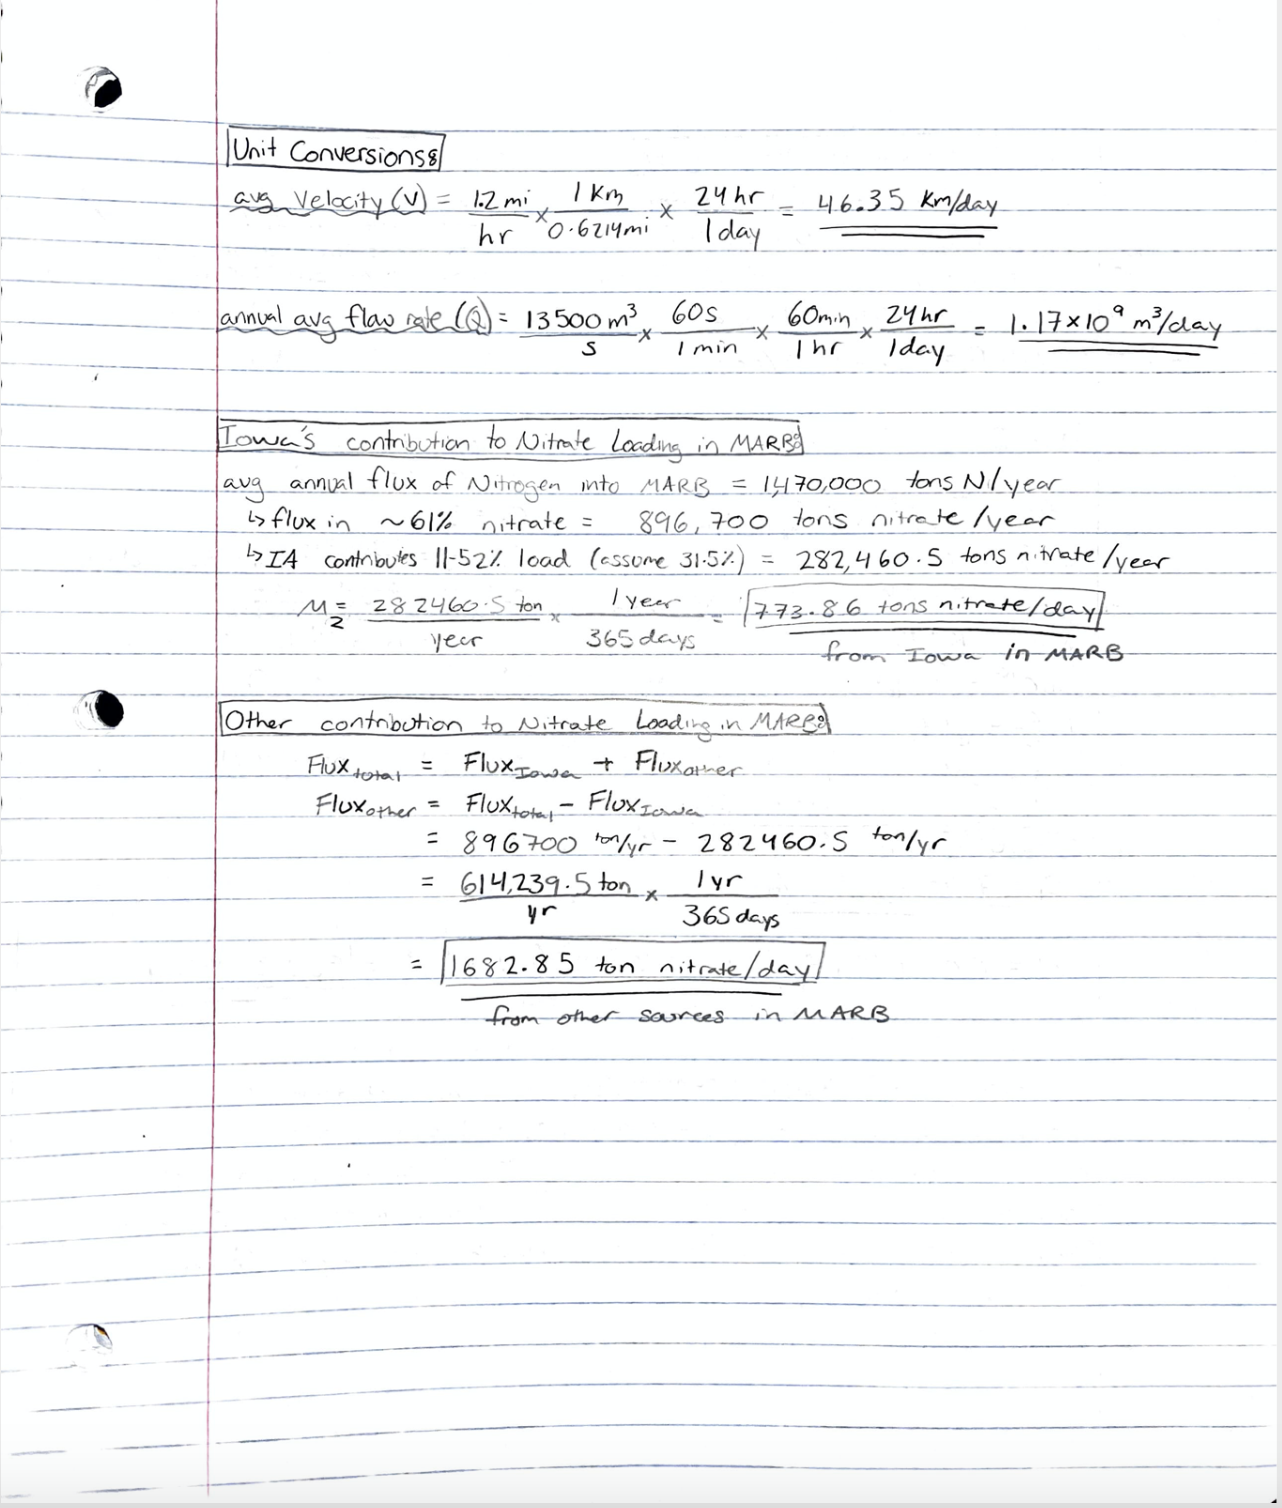 Unit Conversions:
avg Velocity (V) = 1.2 mi/hr × 1 Km/0.6214mi × 24 hr/1 day = 46.35 Km/day
annual avg flow rate (Q) = 13500 m³/s × 60s/1 min × 60min/1 hr × 24hr/1day = 1.17×10⁹ m³/day
Iowa's contribution to Nitrate Loading in MARB:
avg annual flux of Nitrogen into MARB = 1,470,000 tons N/year
↳ flux in ~61% nitrate = 896,700 tons nitrate/year
↳ IA contributes 11-52% load (assume 31.5%) = 282,460.5 tons nitrate/year
M₂ = 282460.5 ton/year × 1 year/365 days = 773.86 tons nitrate/day
from Iowa in MARB
Other contribution to Nitrate Loading in MARB:
Flux total = Flux Iowa + Flux other
Flux other = Flux total - Flux Iowa
= 896700 ton/yr - 282460.5 ton/yr
= 614,239.5 ton/yr × 1 yr/365 days
= 1682.85 ton nitrate/day
from other sources in MARB